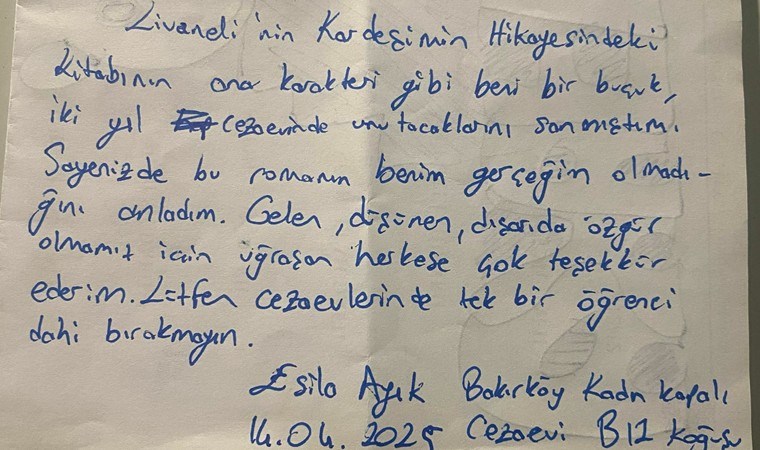 Livaneli'nin Kardeşimin Hikayesindeki
kitabının ana karakteri gibi beni bir buçuk,
iki yıl cezaevinde unutacaklarını sanmıştım.
Sayenizde bu romanın benim gerçeğim olmadı-
ğını anladım. Gelen, düşünen, dışarıda özgür
olmamız için uğraşan herkese çok teşekkür
ederim. Lütfen cezaevlerinde tek bir öğrenci
dahi bırakmayın.
Esila Ayık Bakırköy Kadın kapalı
14.04.2025 Cezaevi B12 koğuşu